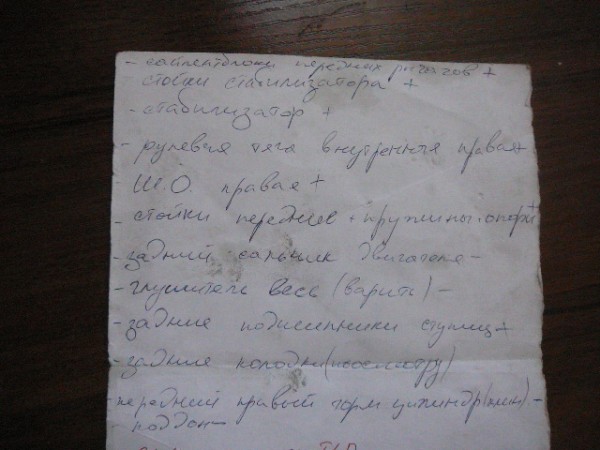 - сайлентблоки передних рычагов +
стойки стабилизатора +
- стабилизатор +
- рулевая тяга внутренняя правая+
- Ш.О. правая +
- стойки передние + пружины + опоры +
- задний сальник двигателя -
- глушитель весь (варить) -
- задние подшипники ступиц +
- задние колодки (по осмотру)
- передний правый торм цилиндр (клин). -
- поддон